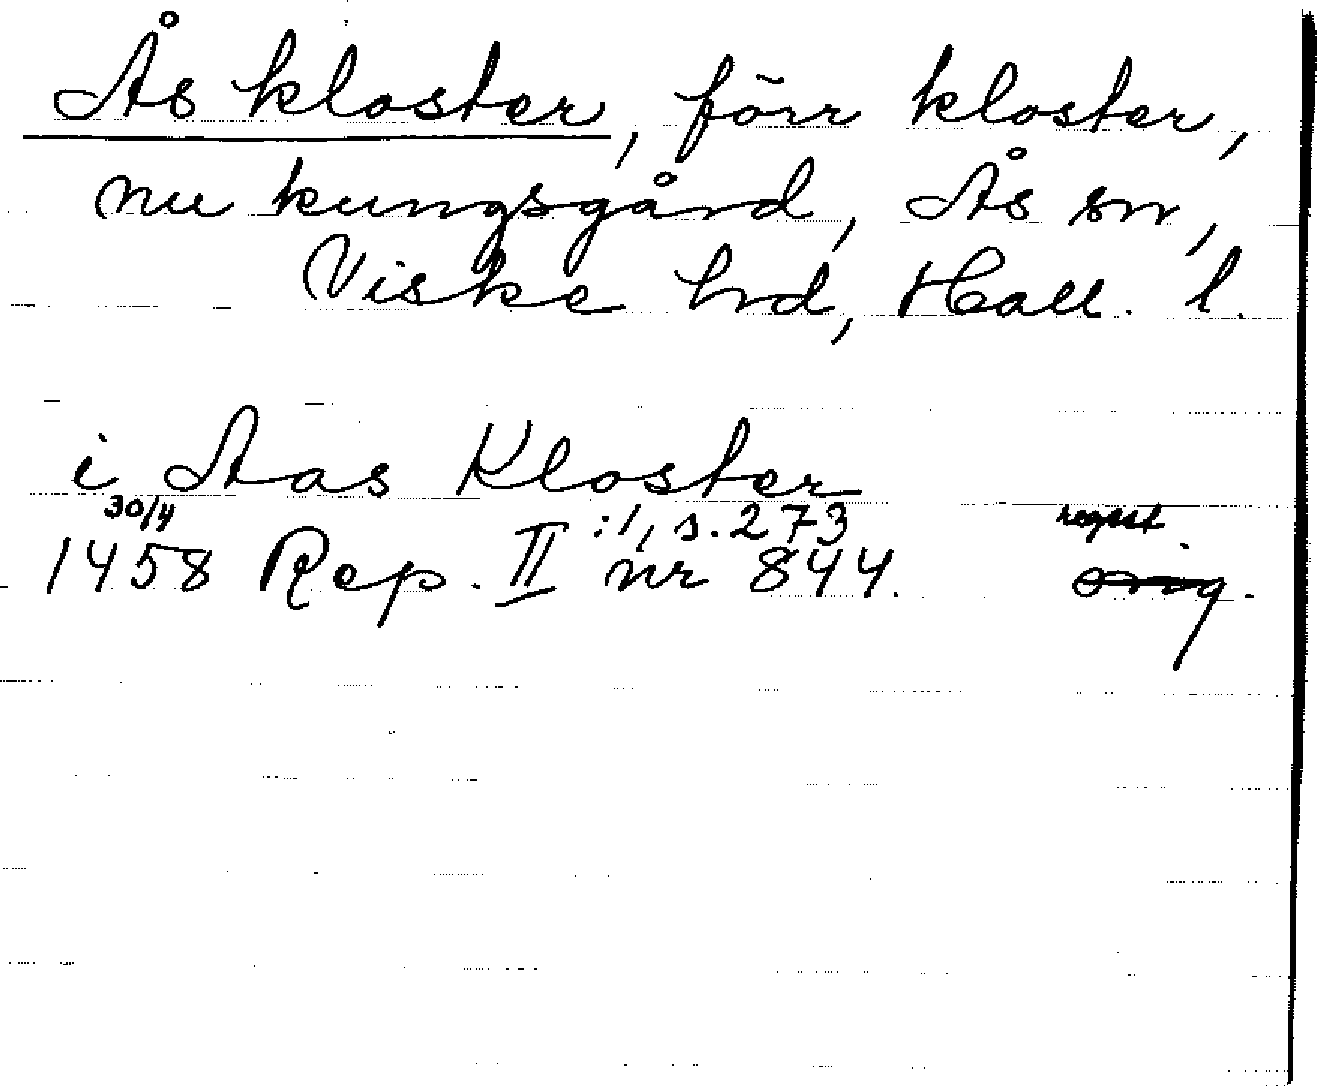 Ås kloster, förr kloster,
nu kungsgård, Ås sn,
Viske hd, Hall. l.
i Aas Kloster
30/4 :1, s. 273 regest.
1458 Rep. II nr 844. orig.